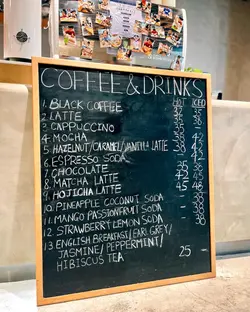 COFFEE & DRINKS
HOT ICED
1. BLACK COFFEE
2. LATTE
3. CAPPUCCINO
4. MOCHA
5. HAZELNUT/CARAMEL/VANILLA LATTE 38 42
6. ESPRESSO SODA
7. CHOCOLATE
8. MATCHA LATTE
9. HOJICHA LATTE 45 48
10. PINEAPPLE COCONUT SODA
11. MANGO PASSIONFRUIT SODA
12. STRAWBERRY LEMON SODA - 38
13. ENGLISH BREAKFAST/EARL GREY/
JASMINE/PEPPERMINT/ 25 -
HIBISCUS TEA